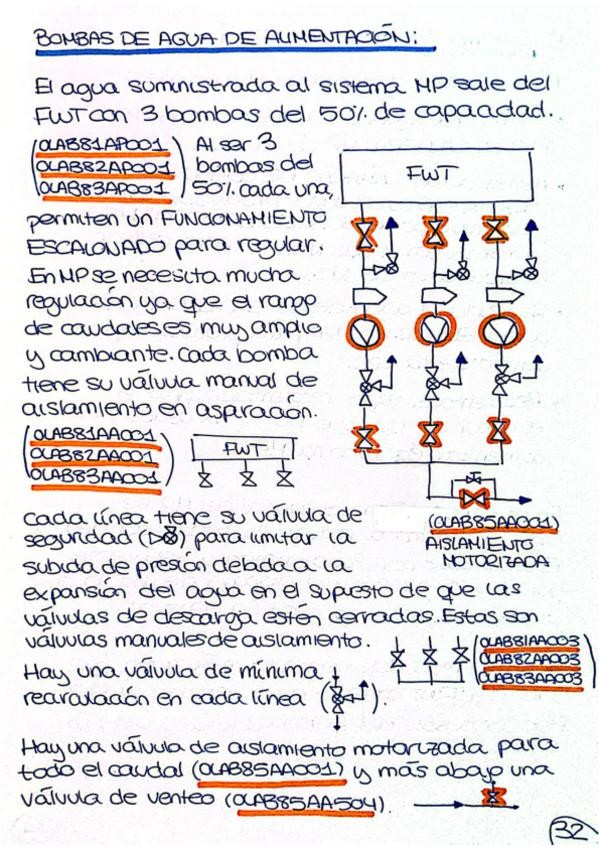 BOMBAS DE AGUA DE ALIMENTACIÓN:
El agua suministrada al sistema MP sale del
FWT con 3 bombas del 50% de capacidad.
(0LAB81AP001
0LAB82AP001
0LAB83AP001)
Al ser 3
bombas del
50% cada una,
permiten un FUNCIONAMIENTO
ESCALONADO para regular.
En MP se necesita mucha
regulación ya que el rango
de caudales es muy amplio
y cambiante. Cada bomba
tiene su válvula manual de
aislamiento en aspiración.
FWT
(0LAB81AA001
0LAB82AA001
0LAB83AA001)
FWT
(0LAB85AA001)
AISLAMIENTO
MOTORIZADA
Cada línea tiene su válvula de
seguridad ( ) para limitar la
subida de presión debida a la
expansión del agua en el supuesto de que las
válvulas de descarga estén cerradas. Estas son
válvulas manuales de aislamiento.
(0LAB81AA003
0LAB82AA003
0LAB83AA003)
Hay una válvula de mínima
recirculación en cada línea ( ).
Hay una válvula de aislamiento motorizada para
todo el caudal (0LAB85AA001) y más abajo una
válvula de venteo (0LAB85AA504).
32